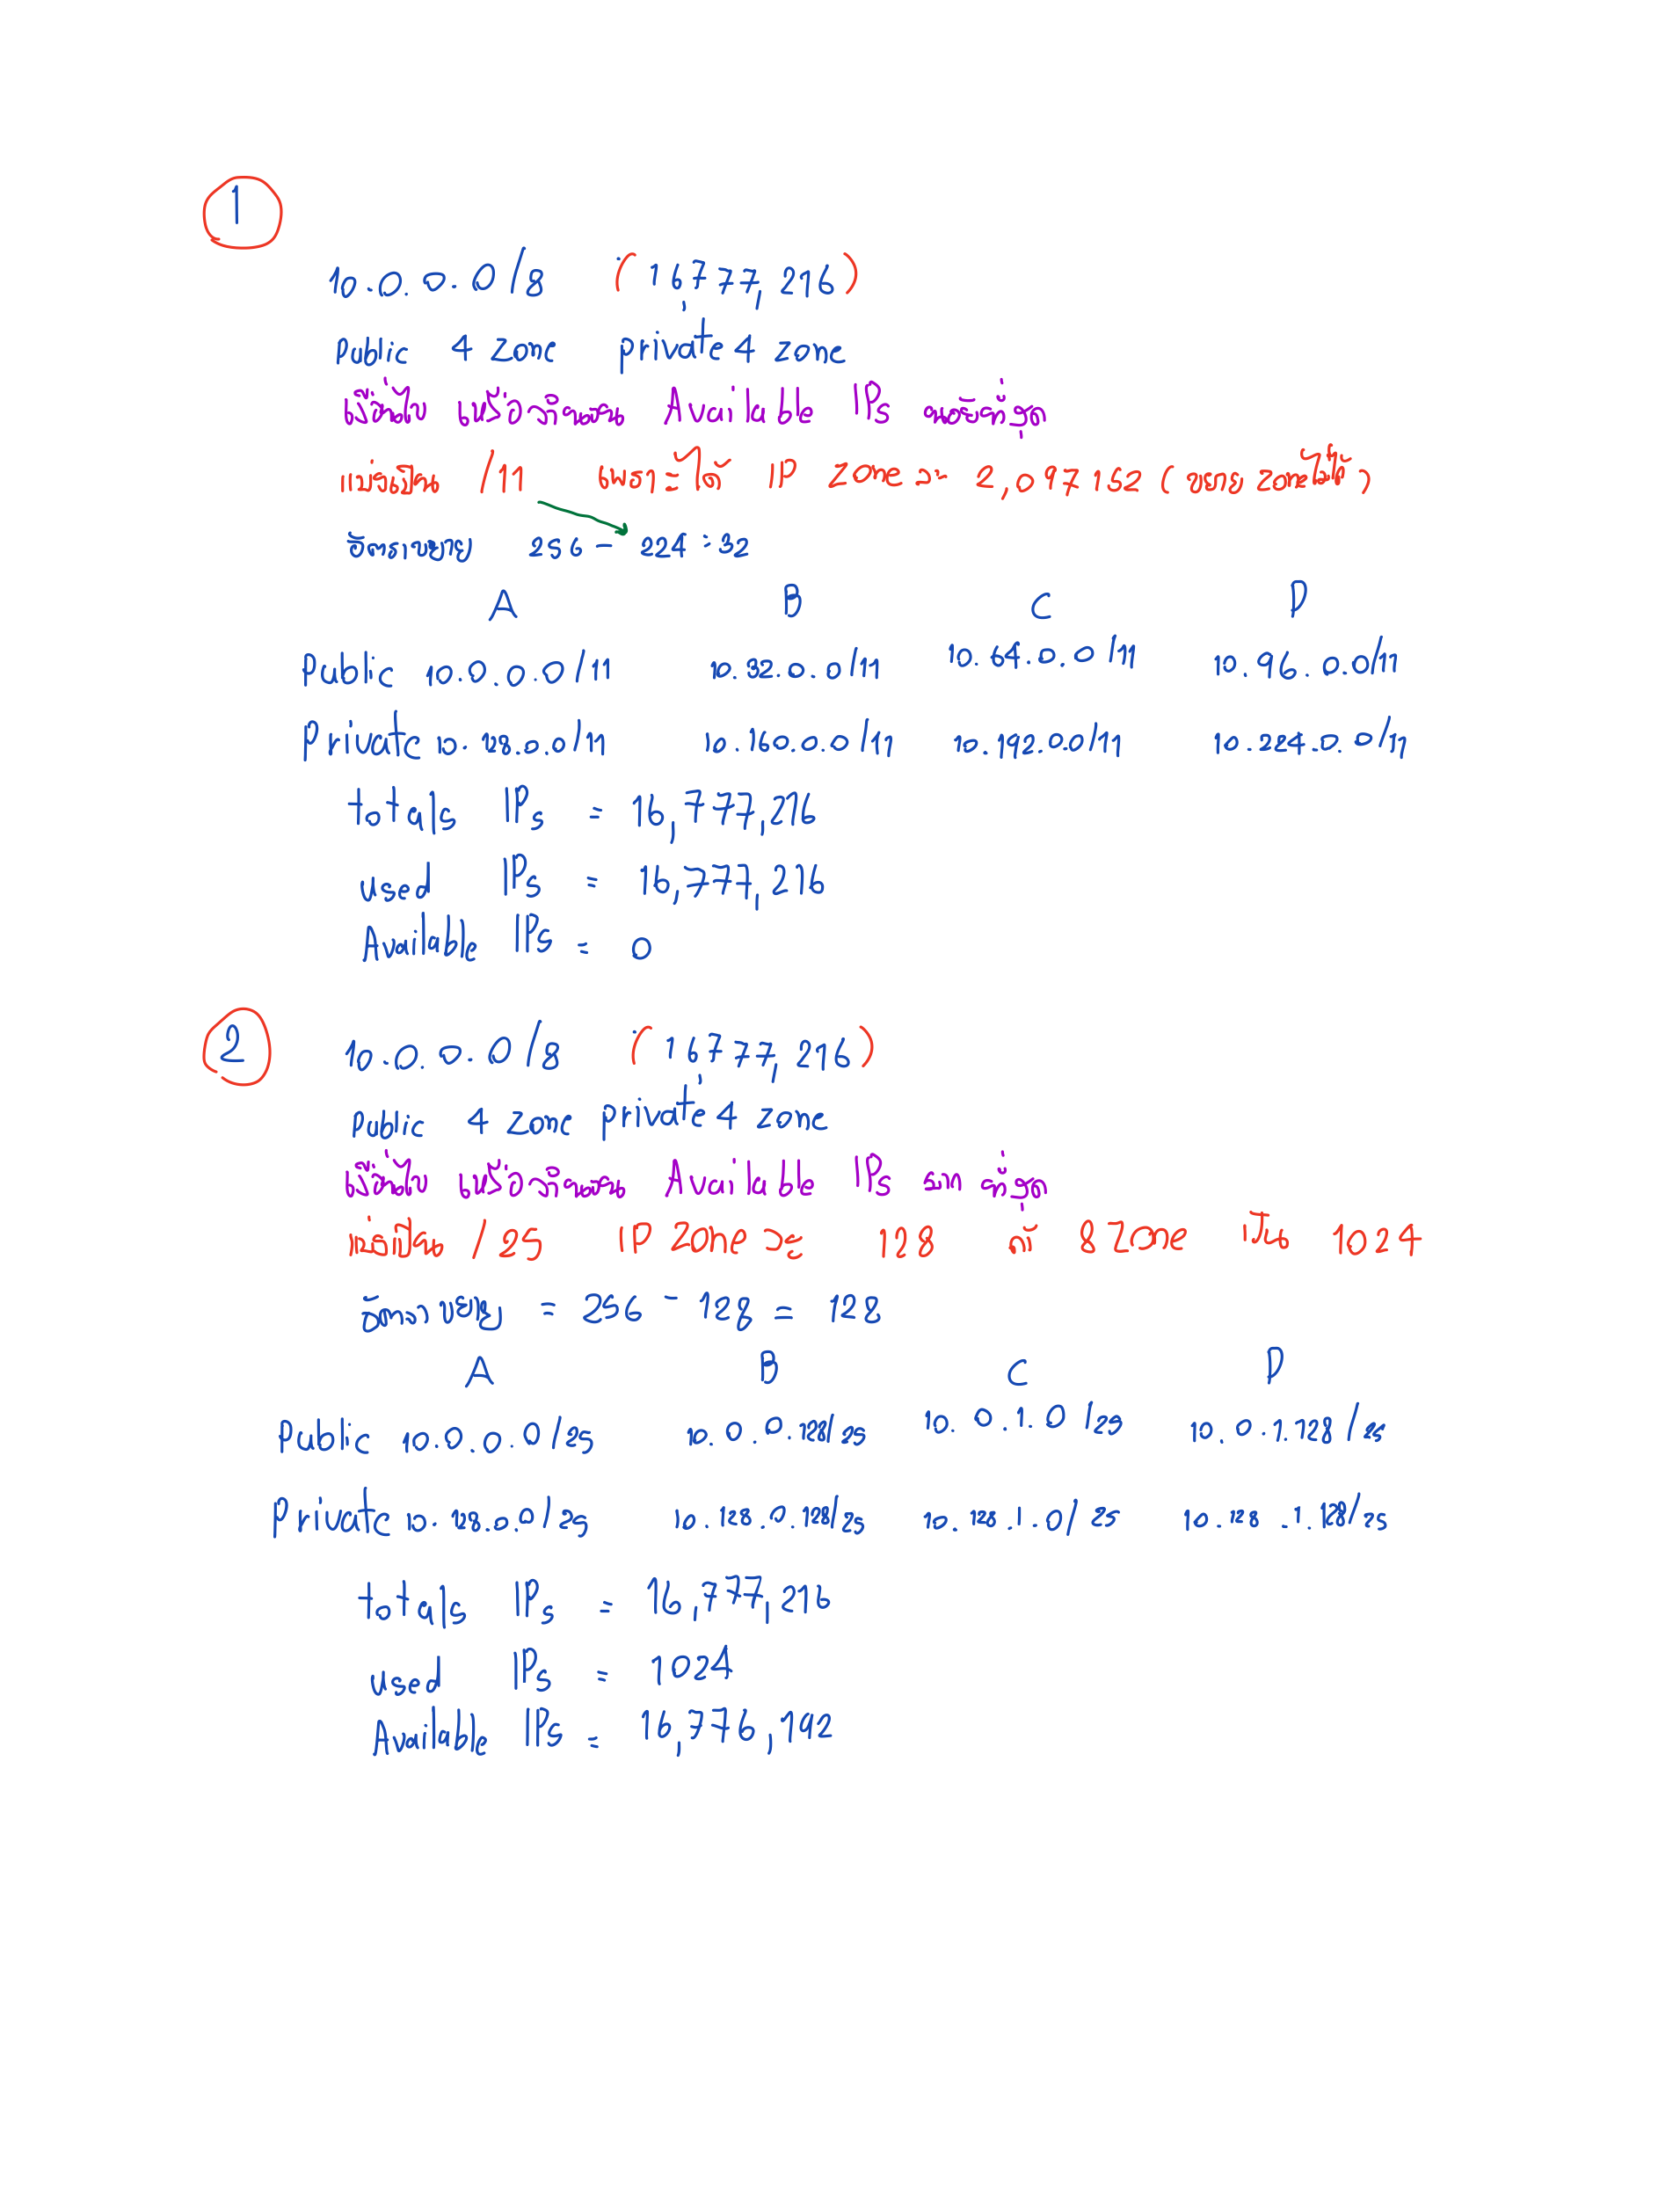 1
10.0.0.0/8 (16,777,216)
Public 4 zone private 4 zone
เงื่อนไข เหลือจำนวน Available IPs น้อยที่สุด
แบ่งเป็น /11 เพราะได้ IP zone ละ 2,097152 (ขยาย zone ไม่ได้)
อัตราขยาย 256 - 224 = 32
A B C D
Public 10.0.0.0/11 10.32.0.0/11 10.64.0.0/11 10.96.0.0/11
Private 10.128.0.0/11 10.160.0.0/11 10.192.0.0/11 10.224.0.0/11
totals IPs = 16,777,216
used IPs = 16,777,216
Available IPs = 0
2
10.0.0.0/8 (16,777,216)
Public 4 zone private 4 zone
เงื่อนไข เหลือจำนวน Available IPs มากที่สุด
แบ่งเป็น /25 IP Zone ละ 128 ถ้า 8 Zone เป็น 1024
อัตราขยาย = 256 - 128 = 128
A B C D
Public 10.0.0.0/25 10.0.0.128/25 10.0.1.0/25 10.0.1.128/25
Private 10.128.0.0/25 10.128.0.128/25 10.128.1.0/25 10.128.1.128/25
totals IPs = 16,777,216
used IPs = 1024
Available IPs = 16,776,192